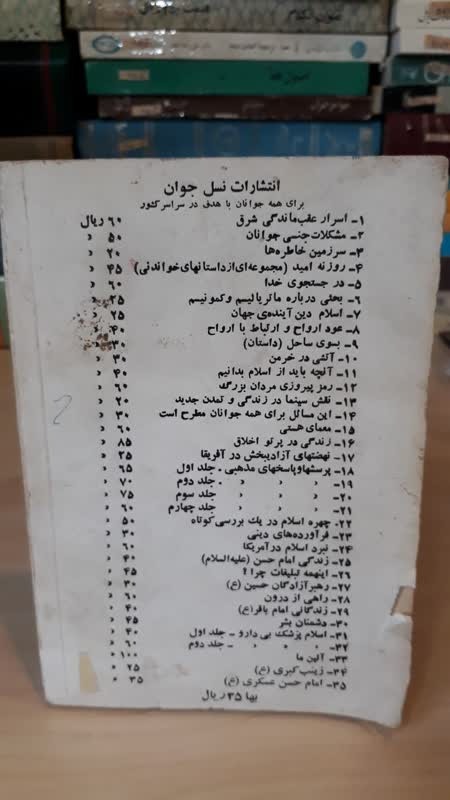 انتشارات نسل جوان
برای همه جوانان با هدف در سراسر کشور
۱- اسرار عقب‌ماندگی شرق ۶۰ ریال
۲- مشکلات جنسی جوانان ۵۰ »
۳- سرزمین خاطره‌ها ۲۰ »
۴- روزنه امید (مجموعه‌ای از داستانهای خواندنی) ۴۵ »
۵- در جستجوی خدا ۶۰ »
۶- بحثی درباره ماتریالیسم و کمونیسم ۲۵ »
۷- اسلام دین آینده‌ی جهان ۲۵ »
۸- عود ارواح و ارتباط با ارواح ۴۰ »
۹- بسوی ساحل (داستان) ۳۰ »
۱۰- آتشی در خرمن ۳۰ »
۱۱- آنچه باید از اسلام بدانیم ۴۰ »
۱۲- رمز پیروزی مردان بزرگ ۶۰ »
۱۳- نقش سینما در زندگی و تمدن جدید ۲۰ »
۱۴- این مسائل برای همه جوانان مطرح است ۳۰ »
۱۵- معمای هستی ۶۰ »
۱۶- زندگی در پرتو اخلاق ۸۵ »
۱۷- نهضتهای آزادیبخش در آفریقا ۲۵ »
۱۸- پرسشها و پاسخهای مذهبی . جلد اول ۶۵ »
۱۹- » » » . جلد دوم ۷۰ »
۲۰- » » » جلد سوم ۷۵ »
۲۱- » » » جلد چهارم ۶۰ »
۲۲- چهره اسلام در یك بررسی کوتاه ۵۰ »
۲۳- فرآورده‌های دینی ۳۰ »
۲۴- نبرد اسلام در آمریکا ۶۰ »
۲۵- زندگی امام حسن (علیه‌السلام) ۴۰ »
۲۶- اینهمه تبلیغات چرا ؟ ۴۵ »
۲۷- رهبر آزادگان حسین (ع) ۳۰ »
۲۸- راهی از درون ۶۰ »
۲۹- زندگانی امام باقر (ع) ۴۰ »
۳۰- دشمنان بشر ۴۵ »
۳۱- اسلام پزشك بی دارو - جلد اول ۶۰ »
۳۲- » » » - جلد دوم ۴۰ »
۳۳- آئین ما ۱۰۰ »
۳۴- زینب کبری (ع) ۲۵ »
۳۵- امام حسن عسکری (ع) ۳۵ »
بها ۳۵ ریال
2